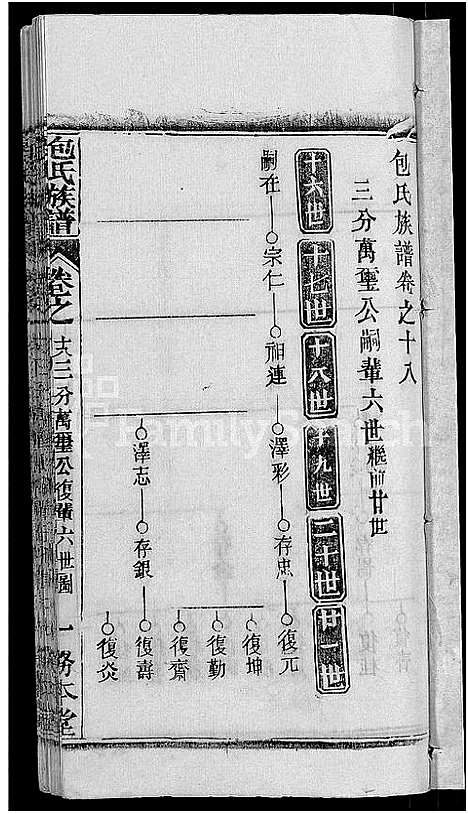 包氏族譜卷之十八
三分萬璽公嗣輩六世繼前廿世
十六世 十七世 十八世 十九世 二十世 廿一世
嗣在 宗仁 相連 澤彩 存忠 復元
復坤
復勤
復齋
澤志 存銀 復壽
復炎
包氏族譜 卷之 十八 三分萬璽公復輩六世圖 一 務本堂
FamilySearch